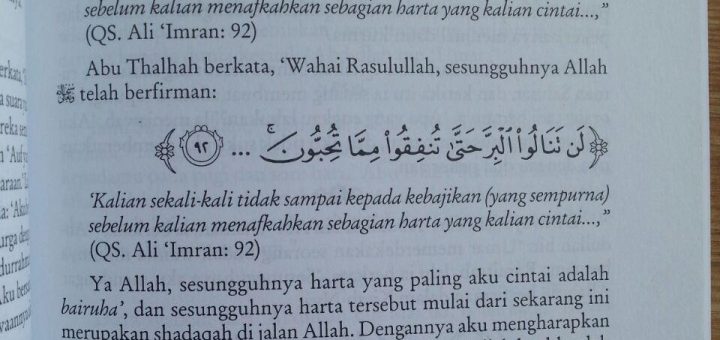 sebelum kalian menafkahkan sebagian harta yang kalian cintai...,"
(QS. Ali 'Imran: 92)
Abu Thalhah berkata, 'Wahai Rasulullah, sesungguhnya Allah
telah berfirman:
﴿ لَن تَنَالُوا۟ ٱلْبِرَّ حَتَّىٰ تُنفِقُوا۟ مِمَّا تُحِبُّونَ ۚ ... ٩٢ ﴾
'Kalian sekali-kali tidak sampai kepada kebajikan (yang sempurna)
sebelum kalian menafkahkan sebagian harta yang kalian cintai...,"
(QS. Ali 'Imran: 92)
Ya Allah, sesungguhnya harta yang paling aku cintai adalah
bairuha', dan sesungguhnya harta tersebut mulai dari sekarang ini
merupakan shadaqah di jalan Allah. Dengannya aku mengharapkan